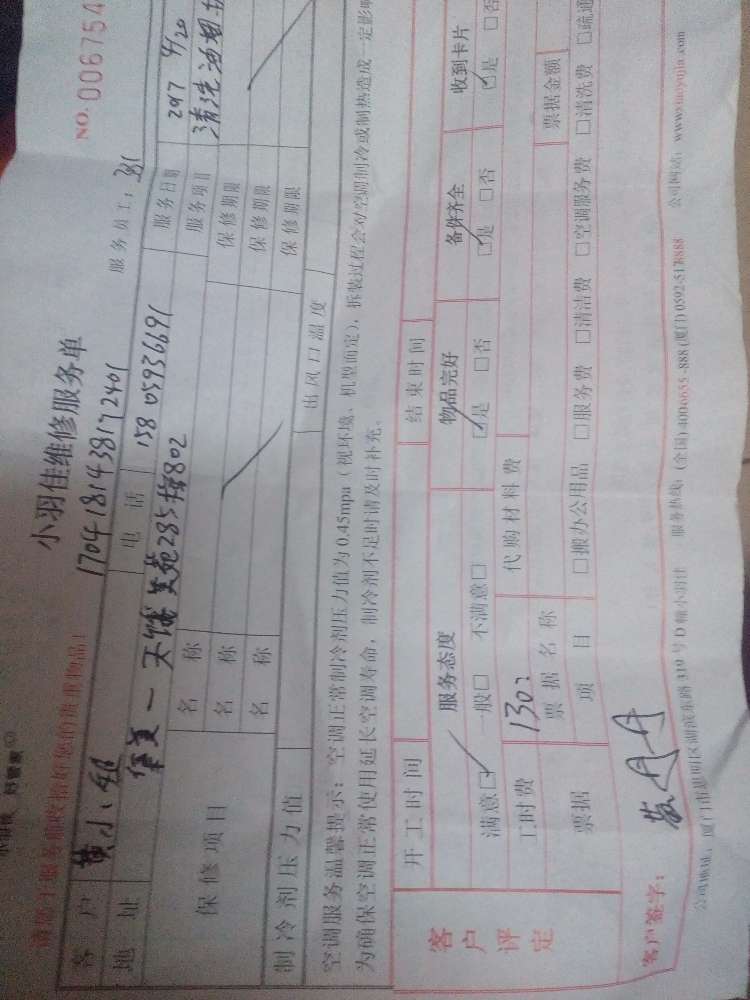 NO. 006754
小羽佳维修服务单
客 户 黄小姐 1704181438172401 服务员工：
地 址 电 话 158 05936691
天城美苑285楼802
服务日期 2017 4/20
服务项目 清洗油烟
保修项目 名 称 保修期限
名 称 保修期限
名 称 保修期限
制冷剂压力值 出风口温度
空调服务温馨提示：空调正常制冷剂压力值为 0.45mpa（视环境、机型而定），拆装过程会对空调制冷或制热造成一定影响
为确保空调正常使用延长空调寿命，制冷剂不足时请及时补充。
客户评定
开工时间 结束时间
服务态度 物品完好 备件齐全 收到卡片
满意☑ 一般□ 不满意□ ☑是 □否 ☑是 □否 ☑是 □否
工时费 130 代购材料费
票据 票据名称 票据金额
项 目 □搬办公用品 □服务费 □清洁费 □空调服务费 □清洗费 □疏通
客户签字：
公司地址：厦门市思明区湖滨东路 319 号 D 幢小羽佳 服务热线：(全国) 4006655-888 (厦门) 0592-5178888 公司网站：www.xiaoyujia.com